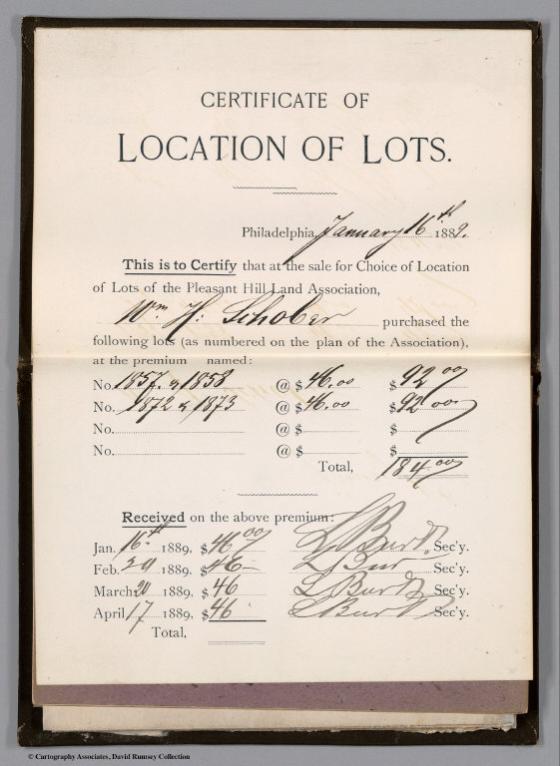 CERTIFICATE OF
LOCATION OF LOTS.
Philadelphia, January 16th 1889.
This is to Certify that at the sale for Choice of Location
of Lots of the Pleasant Hill Land Association,
Wm H. Schober purchased the
following lots (as numbered on the plan of the Association),
at the premium named:
No. 1857 & 1858 @ $46.00 $92 00
No. 1872 & 1873 @ $46.00 $92 00
No. @ $ $
No. @ $ $
Total, 184 00
Received on the above premium:
Jan. 16th 1889, $46 00 L Burt. Sec'y.
Feb. 1889, $46 L Burt Sec'y.
March 20 1889, $46 L Burt Sec'y.
April 17 1889, $46 L Burt Sec'y.
Total,
© Cartography Associates, David Rumsey Collection